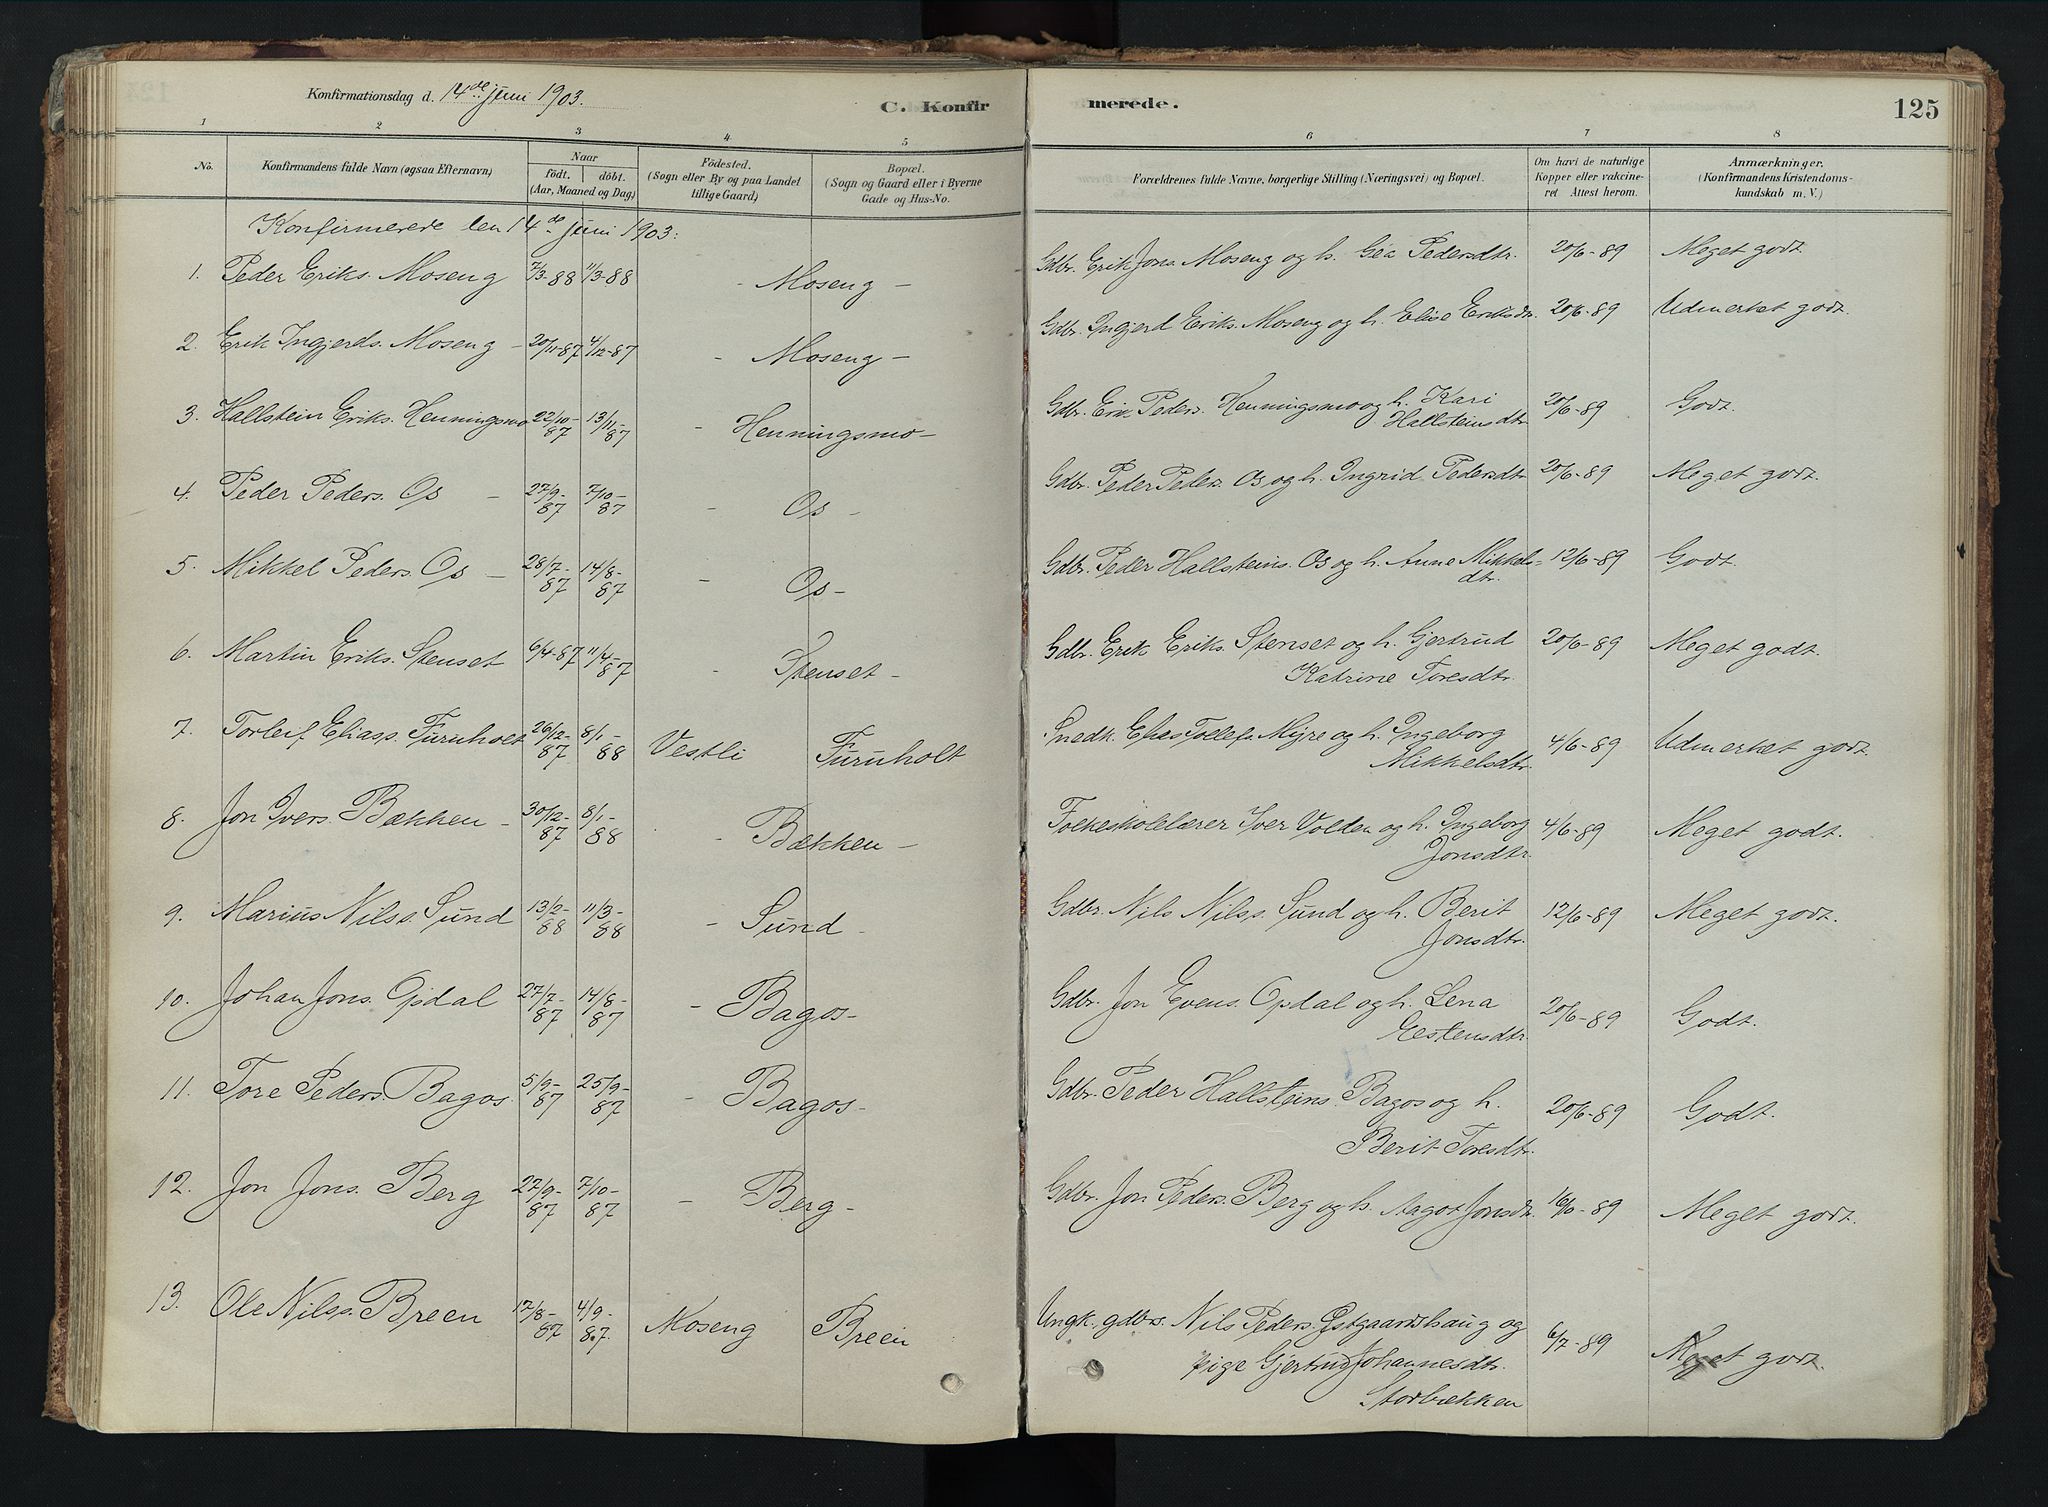 Konfirmationsdag d. 14de Juni 1903.
C. Konfirmerede.
125
1 2 3 4 5 6 7 8
No.
Konfirmandens fulde Navn (ogsaa Efternavn)
Naar
födt. döbt.
(Aar, Maaned og Dag)
Födested.
(Sogn eller By og paa Landet
tillige Gaard)
Bopæl.
(Sogn og Gaard eller i Byerne
Gade og Hus-No.
Forældrenes fulde Navne, borgerlige Stilling (Næringsvei) og Bopæl.
Om havt de naturlige
Kopper eller vakcine-
ret Attest herom.
Anmærkninger.
(Konfirmandens Kristendoms-
kundskab m. V.)
Konfirmerede den 14de Juni 1903:
1. Peder Eriks. Moseng 7/3-88 11/3-88 - Moseng - Gdbr. Erik Jons. Moseng og h. Pedersdtr. 20/6-89 Meget godt.
2. Erik Ingjerds. Moseng - 20/11-87 4/12-87 - Moseng - Gdbr. Ingjerd Eriks. Moseng og h. Elise Eriksdtr. 20/6-89 Udmerket godt.
3. Hallstein Eriks. Henningsmo 22/10-87 13/11-87 - Henningsmo - Gdbr. Erik Peders. Henningsmo og h. Kari
Hallsteinsdtr. 20/6-89 Godt.
4. Peder Peders. Os - 27/9-87 7/10-87 - Os - Gdbr. Peder Peders. Os og h. Ingrid Pedersdtr. 20/6-89 Meget godt.
5. Mikkel Peders. Os - 28/7-87 14/8-87 - Os - Gdbr. Peder Hallsteins. Os og h. Anne Mikkels-
dtr. 12/6-89 Godt.
6. Martin Eriks. Stenset 6/4-87 11/4-87 - Stenset - Gdbr. Erik Eriks. Stenset og h. Gjertrud
Katrine Toresdtr. 20/6-89 Meget godt.
7. Torleif Eliass. Furuholt 26/12-87 8/1-88 Vestli Furuholt Snedk. Elias Tollefs. Myre og h. Ingeborg
Mikkelsdtr. 4/6-89 Udmerket godt.
8. Jon Ivers. Bækken - 30/12-87 8/1-88 - Bækken - Folkeskolelærer Iver Volden og h. Ingeborg
Jonsdtr. 4/6-89 Meget godt.
9. Marius Nilss. Sund 13/2-88 11/3-88 - Sund - Gdbr. Nils Nilss. Sund og h. Berit
Jonsdtr. 12/6-89 Meget godt.
10. Johan Jons. Opdal 27/7-87 14/8-87 - Bagos - Gdbr. Jon Evens. Opdal og h. Lena
Estensdtr. 20/6-89 Godt.
11. Tore Peders. Bagos. 5/9-87 25/9-87 - Bagos - Gdbr. Peder Hallsteins. Bagos og h.
Berit Toresdtr. 20/6-89 Godt.
12. Jon Jons. Berg 27/9-87 7/10-87 - Berg - Gdbr. Jon Peders. Berg og h. Aagot Jonsdtr. -89 Meget godt.
13. Ole Nilss. Breen 17/8-87 4/9-87. Moseng Breen Ungk. gdbrs. Nils Peders. Østgaardshaug og
pige Gjertrud Johannesdtr.
Storbækken 6/7-89 Meget godt.